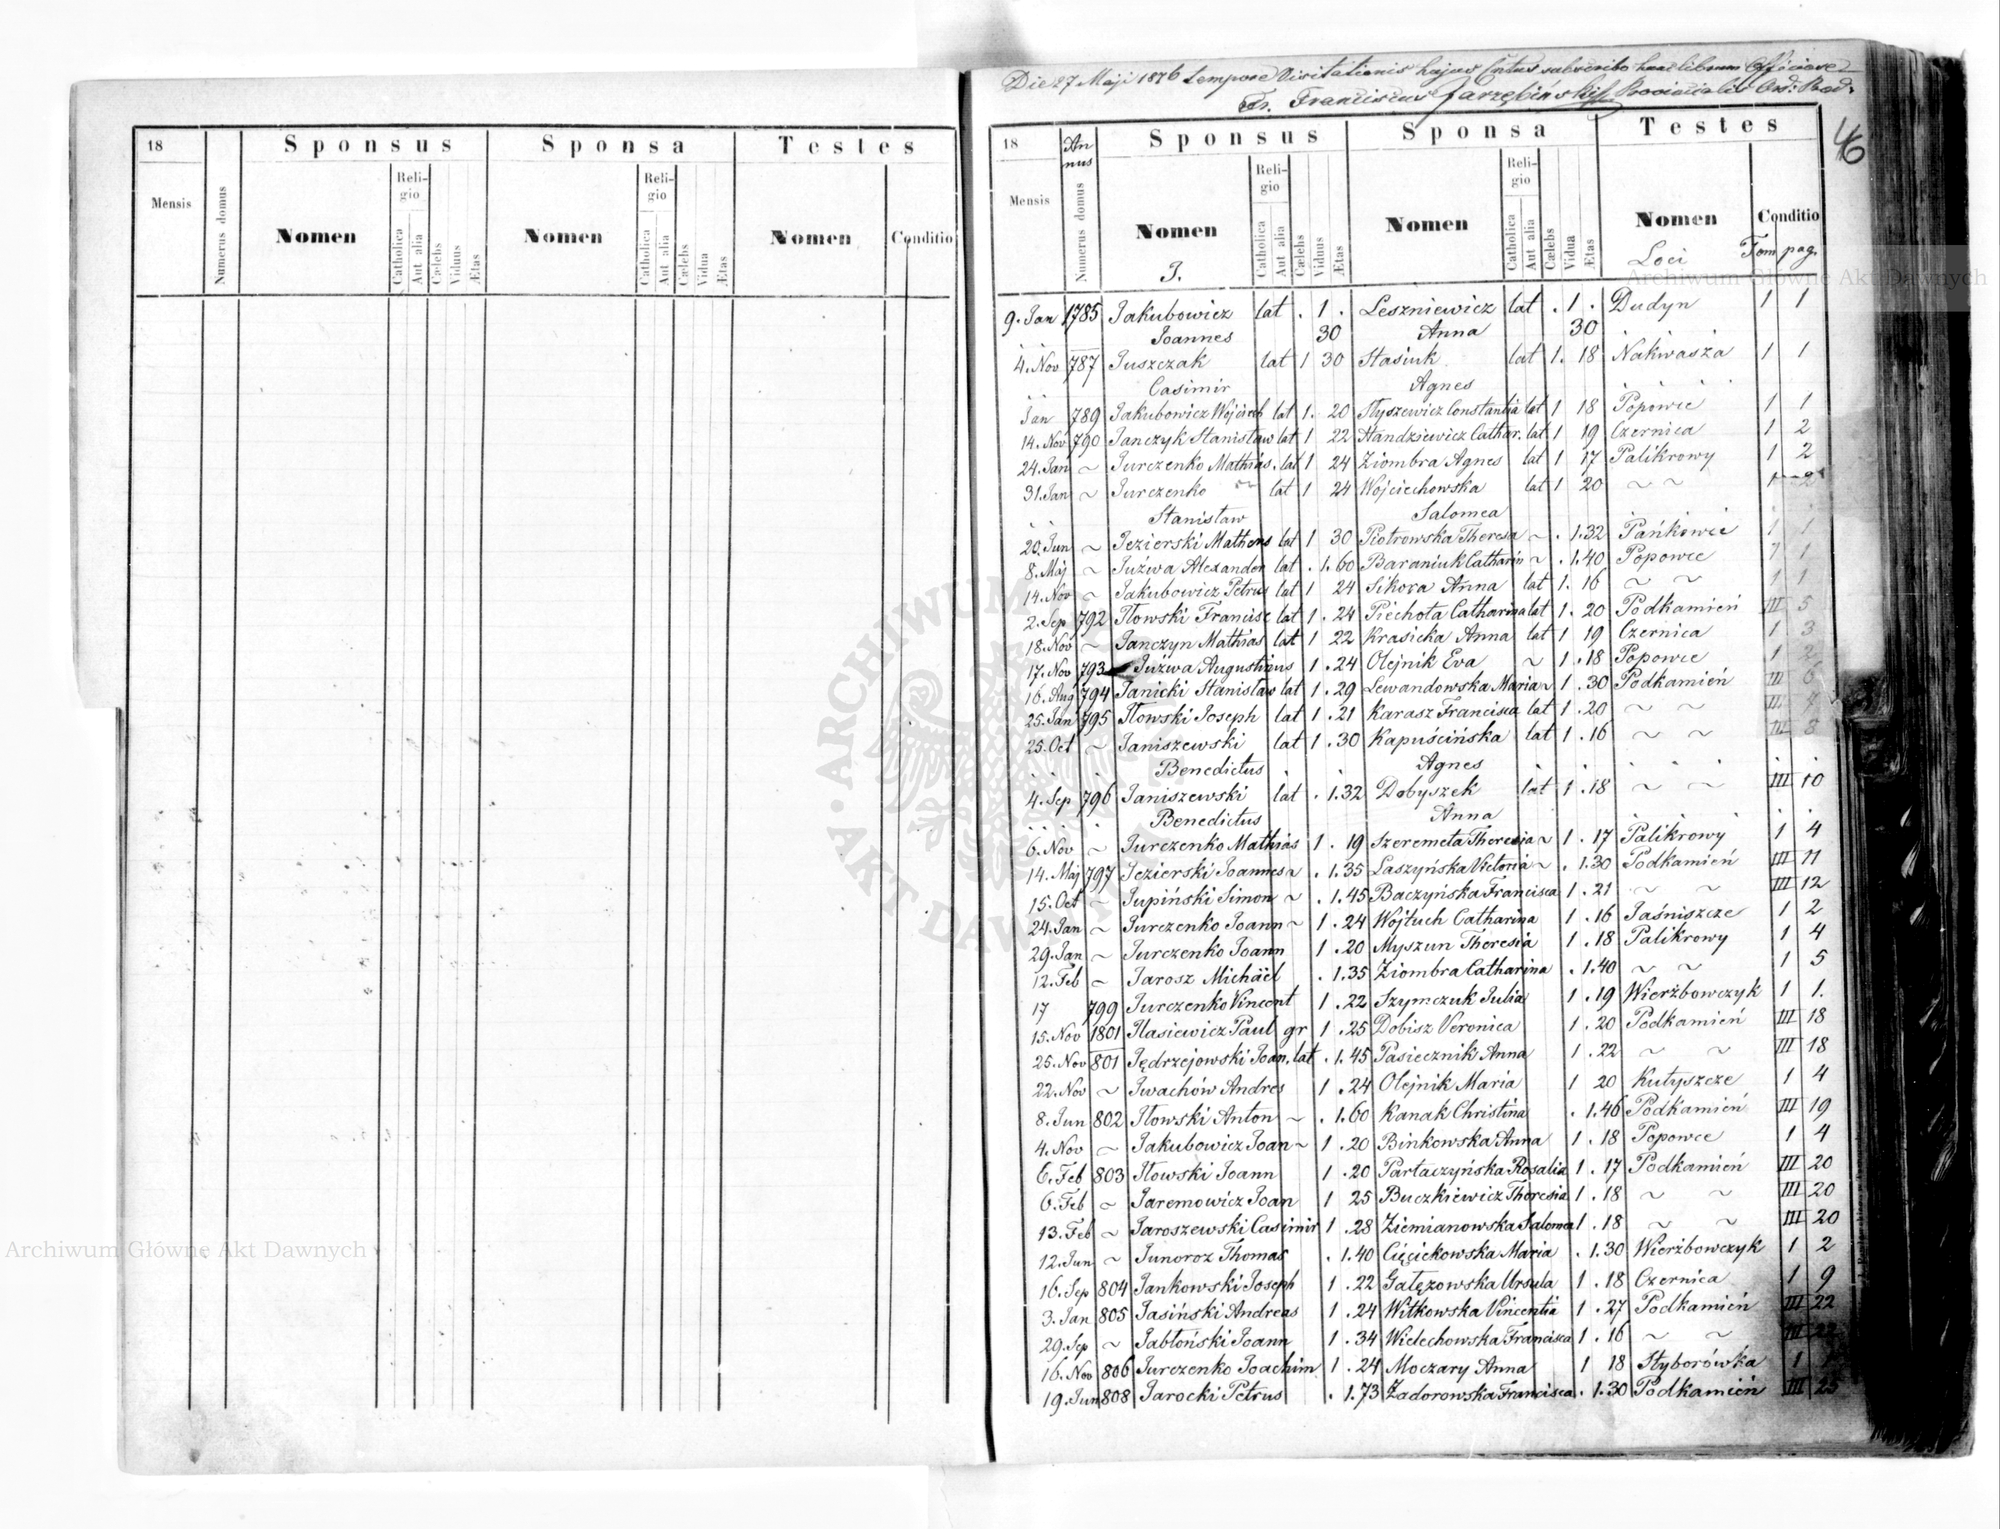 18
Mensis
Numerus domus
Sponsus
Nomen
Religio
Catholica
Aut alia
Cælebs
Viduus
Ætas
Sponsa
Nomen
Religio
Catholica
Aut alia
Cælebs
Vidua
Ætas
Testes
Nomen
Conditio
Die 27 Maji 1876 tempore Visitationis hujus subscribo hunc librum Officiose
Fr. Franciscus Jarzębiński Provincialis Ord: Præd.
46
18
Mensis
Annus
Numerus domus
Sponsus
Nomen
J.
Religio
Catholica
Aut alia
Cælebs
Viduus
Ætas
Sponsa
Nomen
Religio
Catholica
Aut alia
Cælebs
Vidua
Ætas
Testes
Nomen
Loci
Conditio
Tom pag.
9. Jan 1785 Jakubowicz lat . 1 . Leszniewicz lat . 1 . Dudyn 1 1
Joannes 30 Anna 30
4. Nov 787 Juszczak lat 1 30 Stasiuk lat 1. 18 Nakwasza 1 1
Casimir Agnes
Jan 789 Jakubowicz Wojciech lat 1. 20 Styszewicz Constantia lat 1 18 Popowce 1 1
14. Nov 790 Janczyk Stanisław lat 1 22 Standziewicz Cathar. lat 1 19 Czernica 1 2
24. Jan ~ Jurczenko Mathias. lat 1 24 Ziombra Agnes lat 1 17 Palikrowy 1 2
31. Jan ~ Jurczenko ~ lat 1 24 Wojciechowska lat 1 20 ~ ~ 1 2
Stanisław Salomea
20. Jun ~ Jezierski Matheus lat 1 30 Piotrowska Theresa ~ . 1.32 Pańkowce 1 1
8. Maj ~ Juźwa Alexander lat . 1.60 Baraniuk Catharin ~ . 1.40 Popowce 1 1
14. Nov ~ Jakubowicz Petrus lat 1 24 Sikora Anna lat 1. 16 ~ ~ 1 1
2. Sep 792 Iłowski Francisc lat 1 . 24 Piechota Catharina lat 1 . 20 Podkamień III 5
18. Nov ~ Janczyn Mathias lat 1 22 Krasicka Anna lat 1 19 Czernica 1 3
17. Nov 793 Juźwa Augustinus 1 . 24 Olejnik Eva ~ 1 . 18 Popowce 1 2
16. Aug 794 Janicki Stanisław lat 1 . 29 Lewandowska Maria ~ 1 . 30 Podkamień III 6
25. Jan 795 Iłowski Joseph lat 1 . 21 Karasz Francisca lat 1 . 20 ~ ~ III 7
25. Oct ~ Janiszewski lat 1 . 30 Kapuścińska lat 1 . 16 ~ ~ III 8
Benedictus Agnes
4. Sep 796 Janiszewski lat . 1.32 Dobyszek lat 1 . 18 ~ ~ III 10
Benedictus Anna
6. Nov ~ Jurczenko Mathias 1 . 19 Szeremeta Theresia ~ 1 . 17 Palikrowy 1 4
14. Maj 797 Jezierski Joannes . 1.35 Laszyńska Victoria ~ . 1.30 Podkamień III 11
15. Oct ~ Jupiński Simon ~ . 1.45 Baczyńska Francisca 1 . 21 ~ ~ III 12
24. Jan ~ Jurczenko Joann ~ 1 . 24 Wojtuch Catharina 1 . 16 Jaśniszcze 1 2
29. Jan ~ Jurczenko Joann 1 . 20 Myszun Theresia 1 . 18 Palikrowy 1 4
12. Feb ~ Jarosz Michäel . 1.35 Ziombra Catharina . 1.40 ~ ~ 1 5
17 799 Jurczenko Vincent 1 . 22 Szymczuk Julia 1 . 19 Wierzbowczyk 1 1.
15. Nov 1801 Ilasiewicz Paul gr 1 . 25 Dobisz Veronica 1 . 20 Podkamień III 18
25. Nov 801 Jędrzejowski Joan. lat . 1.45 Pasiecznik Anna 1 . 22 ~ ~ III 18
22. Nov ~ Iwachów Andres 1 . 24 Olejnik Maria 1 20 Kutyszcze 1 4
8. Jun 802 Iłowski Anton ~ . 1.60 Kanak Christina . 1.46 Podkamień III 19
4. Nov ~ Jakubowicz Joan ~ 1 . 20 Binkowska Anna 1 . 18 Popowce 1 4
6. Feb 803 Iłowski Joann 1 . 20 Partaczyńska Rosalia 1 . 17 Podkamień III 20
6. Feb ~ Jaremowicz Joan 1 25 Buczkiewicz Theresia 1 . 18 ~ ~ III 20
13. Feb ~ Jaroszewski Casimir 1 . 28 Ziemianowska Salomea 1 . 18 ~ ~ III 20
12. Jun ~ Junoroz Thomas . 1.40 Cięciekowska Maria . 1.30 Wierzbowczyk 1 2
16. Sep 804 Jankowski Joseph 1 . 22 Gałęzowska Ursula 1 . 18 Czernica 1 9
3. Jan 805 Jasiński Andreas 1 . 24 Witkowska Vincentia 1 . 27 Podkamień III 22
29. Sep ~ Jabłoński Joann 1 . 34 Wielechowska Francisca 1 . 16 ~ ~ III 22
16. Nov 806 Jurczenko Joachim 1 . 24 Moczary Anna 1 18 Styborówka 1 1
19. Jun 808 Jarocki Petrus . 1.73 Zadorowska Francisca . 1.30 Podkamień III 25
Archiwum Główne Akt Dawnych
Archiwum Główne Akt Dawnych
ARCHIWUM
AKT DAWNYCH